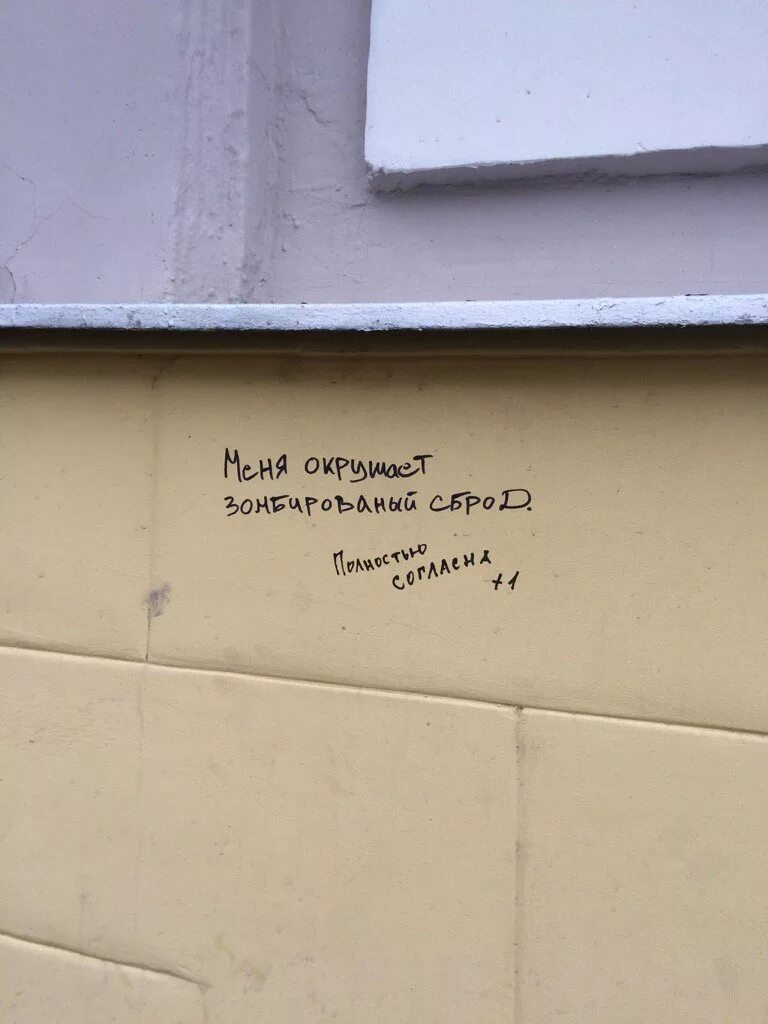 Меня окружает
зомбированый сброд.
Полностью
согласна
+1